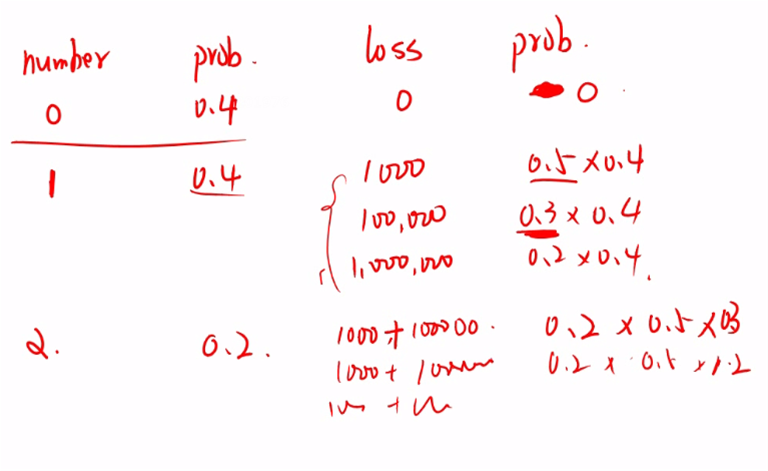 number prob. loss prob.
0 0.4 0 0
1 0.4 1000 0.5 × 0.4
100,000 0.3 × 0.4
1,000,000 0.2 × 0.4
2. 0.2. 1000 + 100000. 0.2 × 0.5 × 03
1000 + 0.2 ×